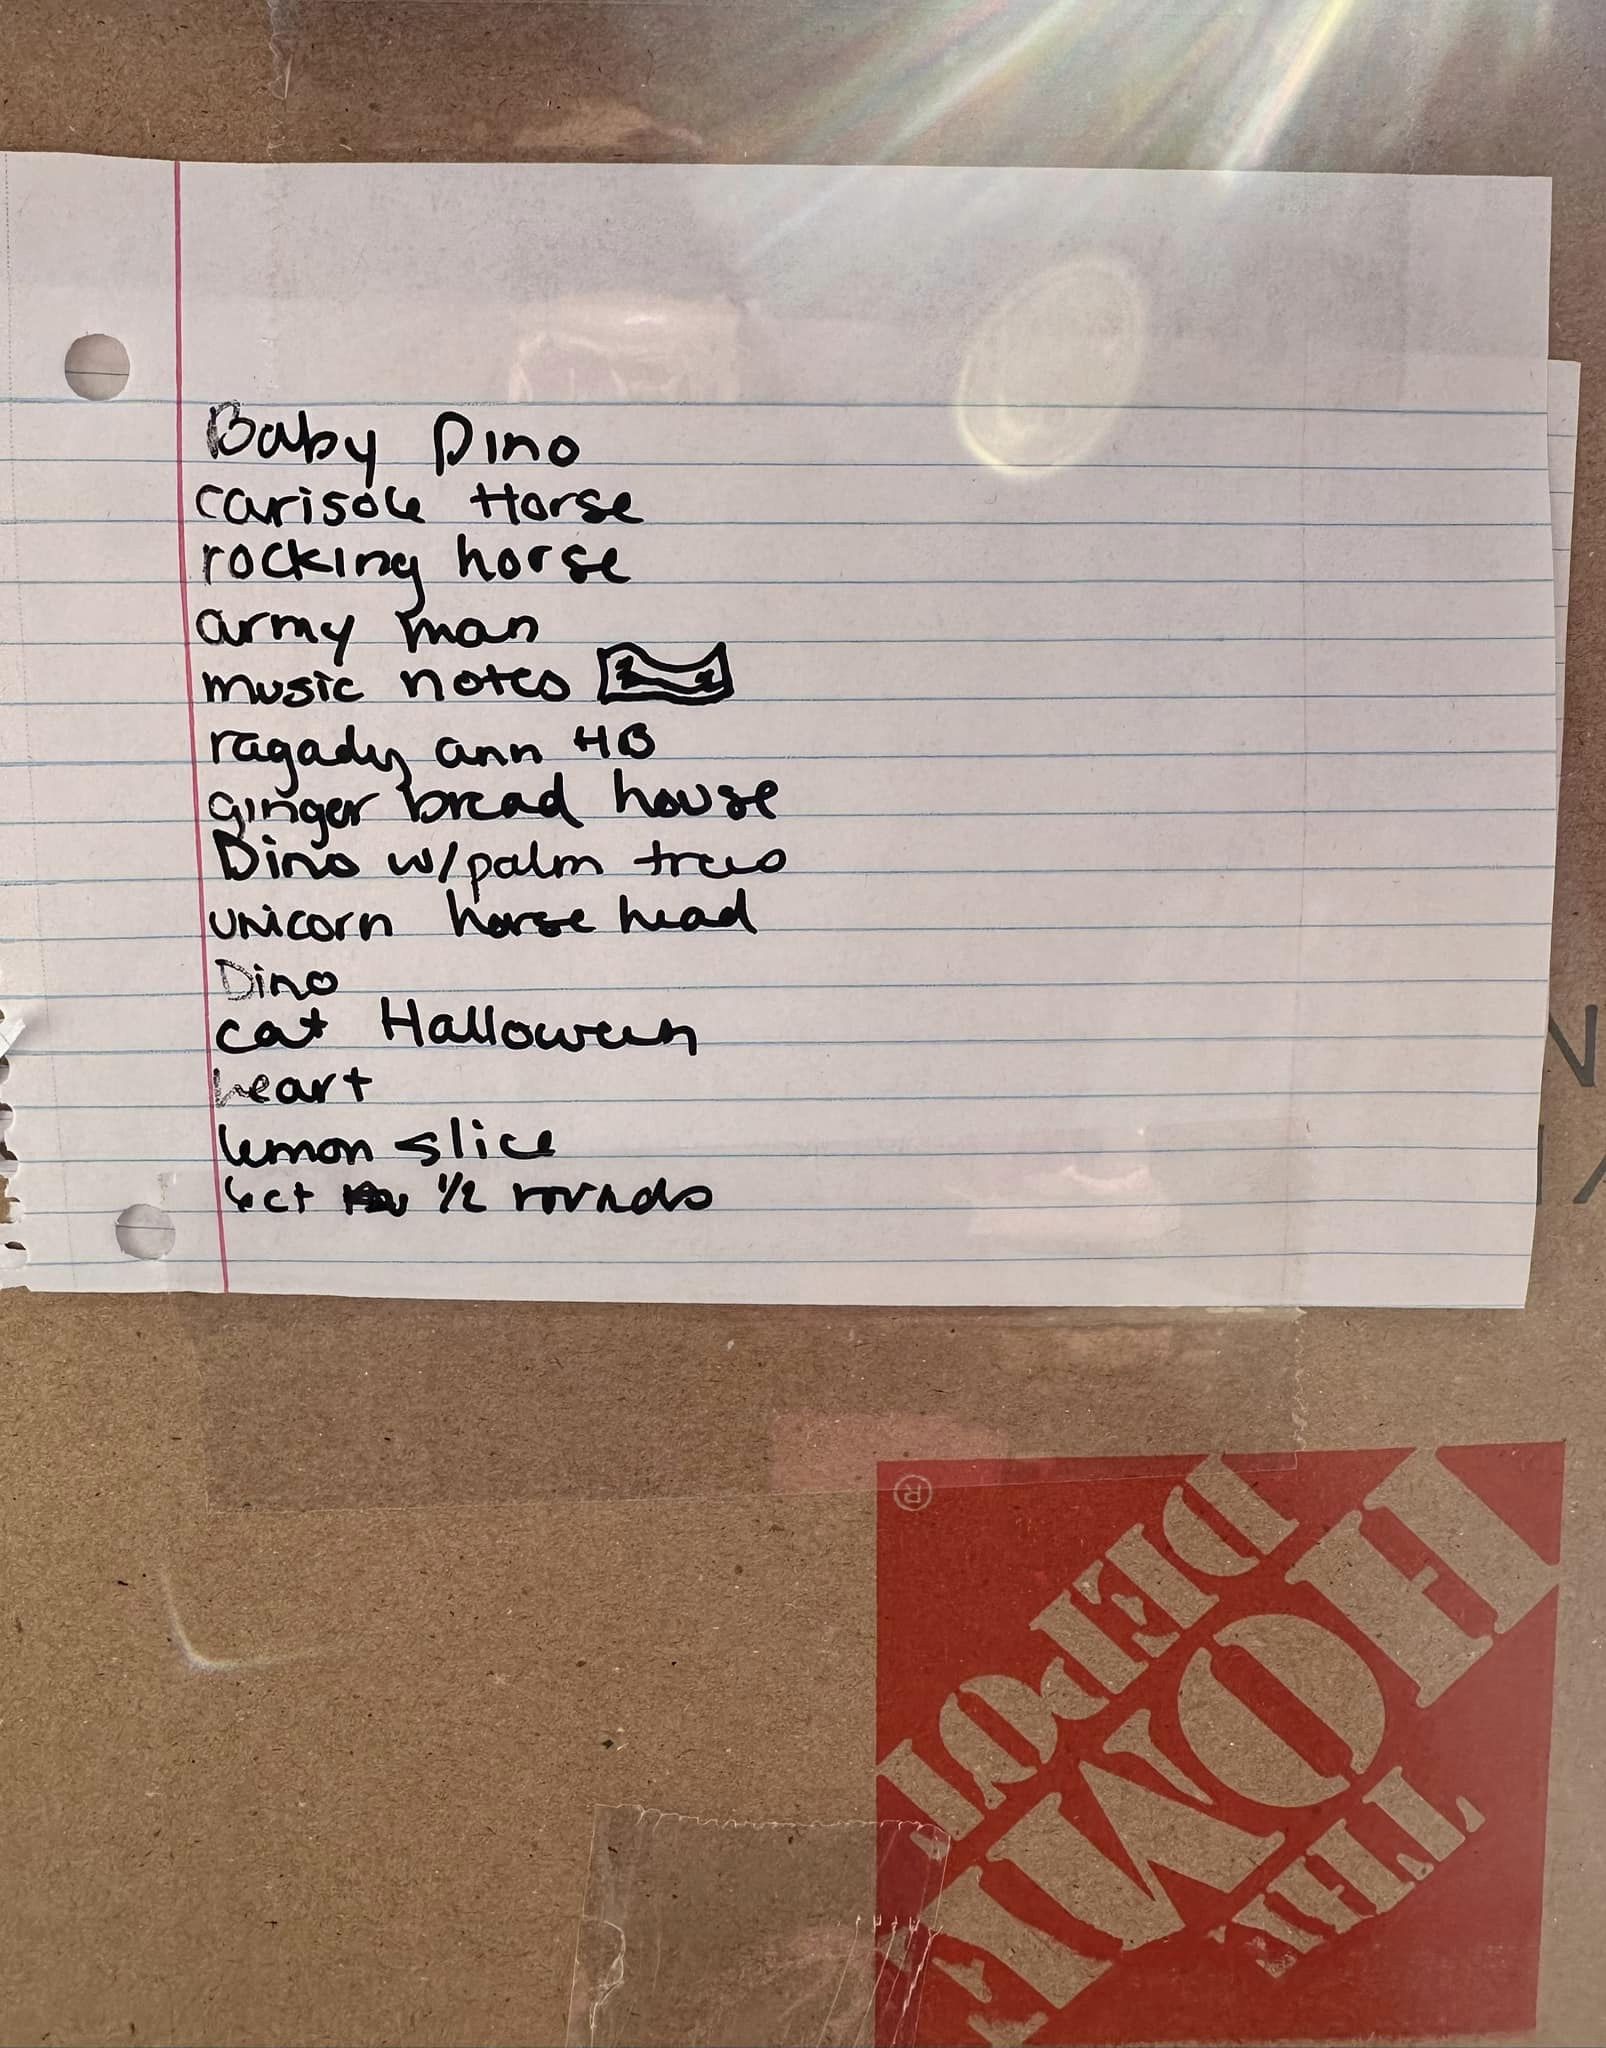 Baby Dino
carisole Horse
rocking horse
army man
music notes
ragady ann HB
ginger bread house
Dino w/palm trees
unicorn horse head
Dino
cat Halloween
heart
lemon slice
6ct 1/2 rounds
THE
HOME
DEPOT
®